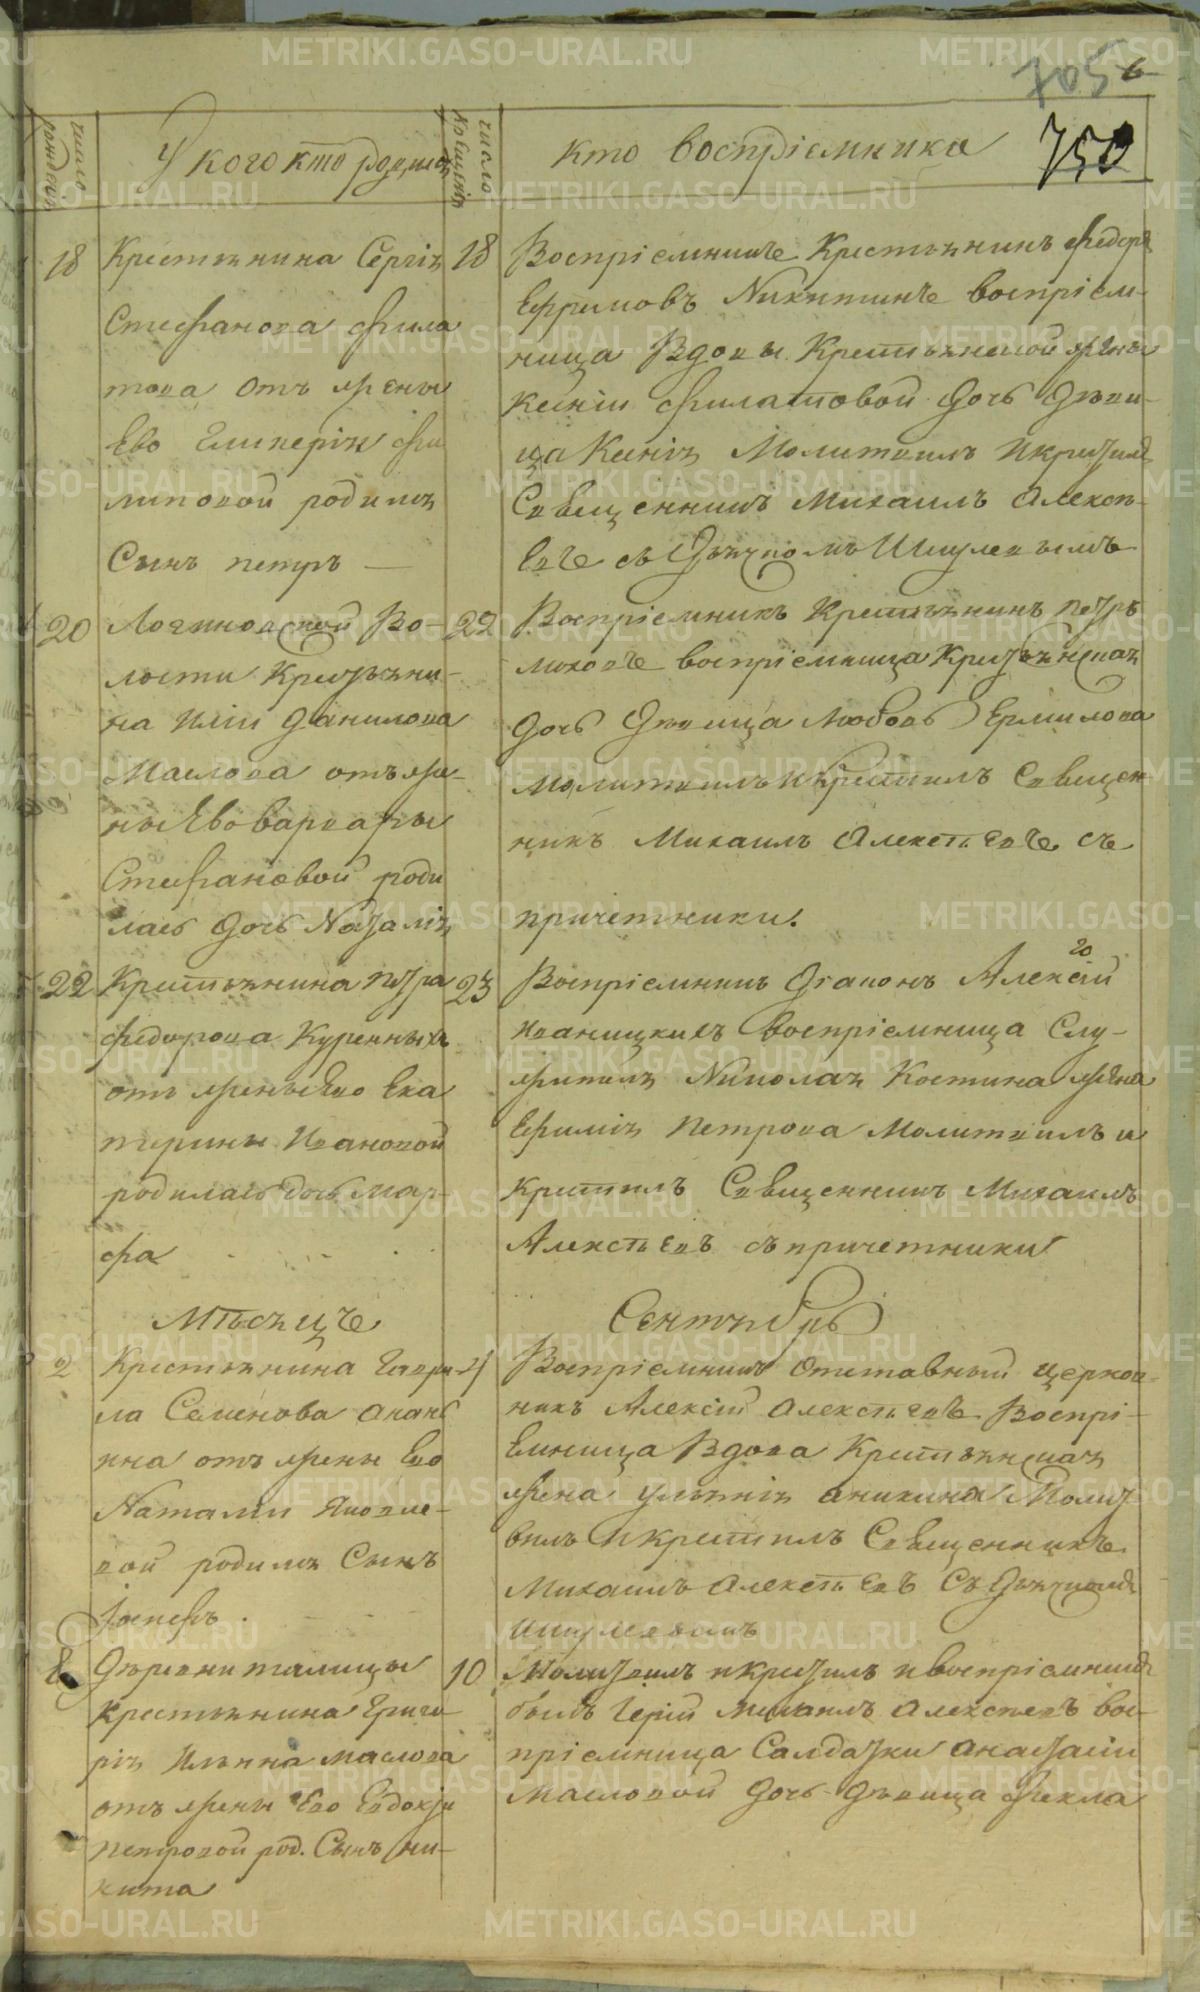 705 6
число рождения
У кого кто родился
число крещения
кто восприемники
750
18
Крестьянина Сергія
Стефанова Фила
това отъ жены
Ево Гликеріи Фи
липовой родился
Сынъ петръ —
18
Воспріемникъ Крестьянинъ Федоръ
Ефремовъ Никитинъ воспріем-
ница Вдовы Крестьянской жены
Ксеніи Филатовой дочь Дѣви-
ца Ксенія Молитвилъ Икрестилъ
Священникъ Михаилъ Алексѣ-
евъ съ Дьячкомъ Ишулевымъ
20
Логиновской Во-
лости Крестьяни-
на Иліи Данилова
Маслова отъ же-
ны Ево варвары
Стефановой роди
лась дочь Наталія
22
Воспріемникъ Крестьянинъ Петръ
воспріемница Крестьянская
дочь Дѣвица Любовь Ермилова
молитвилъ Икрестилъ Священ-
никъ Михаилъ Алексѣевъ съ
причетники.
22
Крестьянина Петра
Федорова Куренныхъ
отъ жены Ево Ека
терины Ивановой
родилась дочь Мар-
фа
23
Воспріемникъ Діаконъ Алексій
Иваницкихъ воспріемница Слу-
жителя Николая Костина жена
Ефимія Петрова Молитвилъ и
Крестилъ Священникъ Михаилъ
Алексѣевъ съ причетники
Мѣсяцъ Сентябрь
2
Крестьянина Гаври-
ла Семенова Анань
ина отъ жены Ево
Наталіи Яковле-
вой родился Сынъ
Іосифъ .
4
Воспріемникъ Отставный церков-
никъ Алексій Алексѣевъ Воспрі-
емница Вдова Крестьянская
жена Ульянія Аникина Молит
вилъ Икрестилъ Священникъ
Михаилъ Алексѣевъ Съ Дьячкомъ
Ишулевымъ
8
Деревни талицы
Крестьянина Григо-
рія Ильина маслова
отъ жены Ево Евдокіи
петровой род. Сынъ Ни-
кита
10
Молитвилъ и Крестилъ и воспріемникъ
былъ Іерій Михаилъ Алексѣевъ вос-
пріемница Салдатки Анастасіи
Масловой дочь дѣвица Фекла